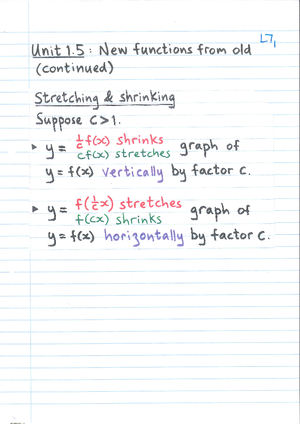 L7,
Unit 1.5: New functions from old
(continued)
Stretching & shrinking
Suppose C>1.
▸ y = 1/c f(x) shrinks
cf(x) stretches graph of
y = f(x) vertically by factor c.
▸ y = f(1/c x) stretches
f(cx) shrinks graph of
y = f(x) horizontally by factor c.